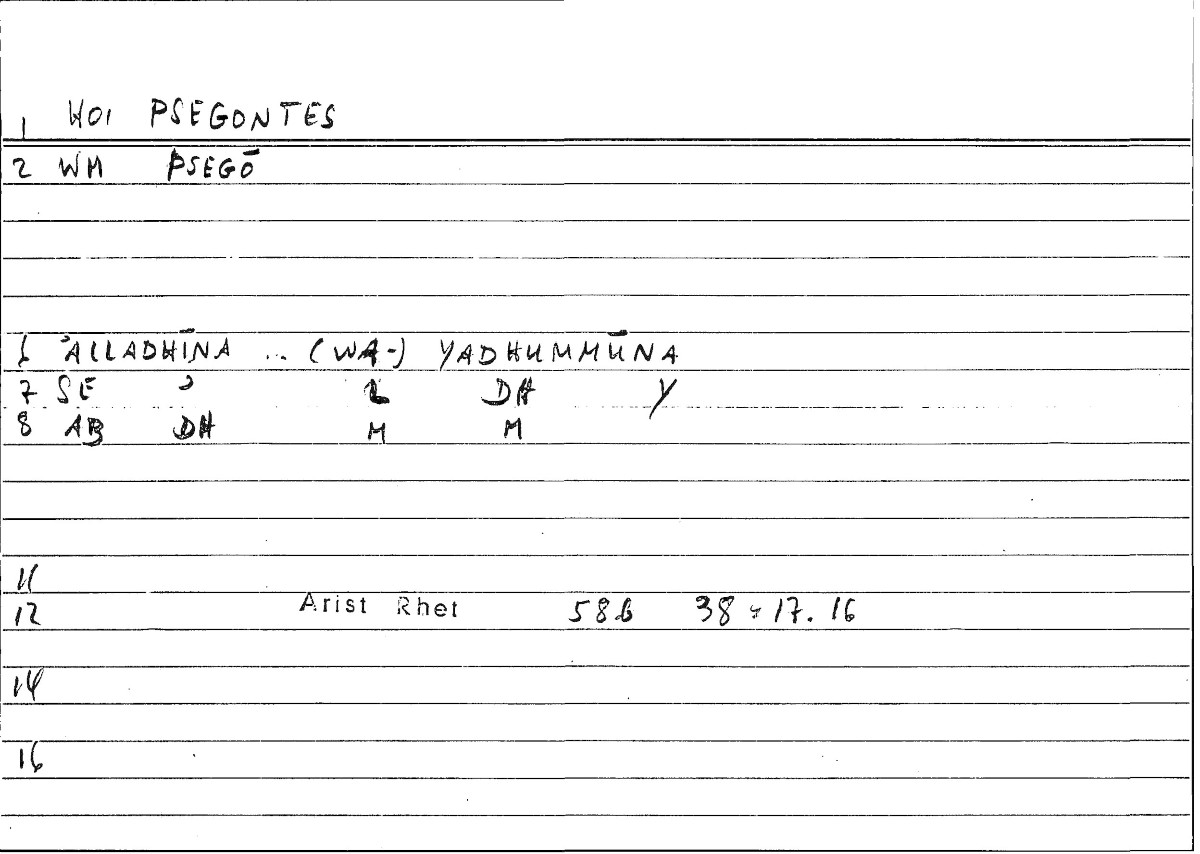 1 HOI PSEGONTES
2 WM PSEGŌ
6 ʾALLADHĪNA ... (WA-) YADHUMMŪNA
7 SE ʾ L DH Y
8 AB DH M M
11
12 Arist Rhet 58b 38 = 17. 16
14
16